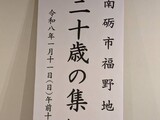 南砺市福野地
二十歳の集
令和八年一月十一日(日)午前十